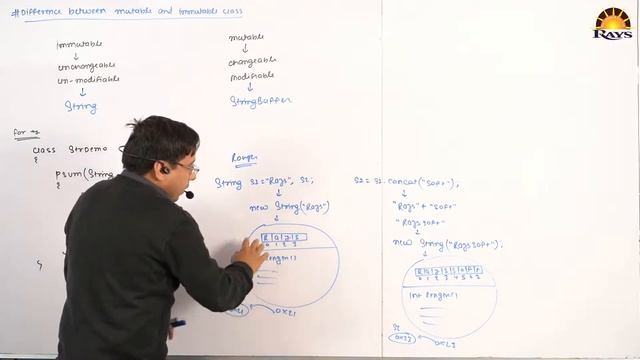 # Difference between mutable and Immutable class
RAYS
Immutable
unchangeable
un-modifiable
String
mutable
changeable
modifiable
StringBuffer
for eg
class StrDemo
{
psum(String
{
String s1="Rays", s2;
new String("Rays")
R a y s
0 1 2 3
length()
0x21
s2 = s1.concat("soft");
"Rays" + "soft"
"Rayssoft"
new String("Rayssoft");
0 1 2 3 4 5 6 7
int length()
s2